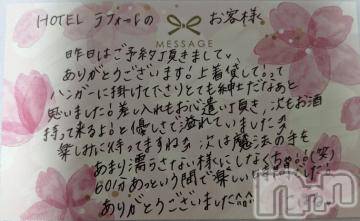 HOTEL ラフォートの お客様
MESSAGE
昨日はご予約頂きまして、
ありがとうございます!上着貸してもらって
ハンガーに掛けて下さりとても紳士だなあと
思いました!差し入れもお心遣い頂き、次もお酒
持って来るよ!と優しさで溢れていました
楽しみに待ってますね 次は魔法の手を
あまり濡らさない様にしなくちゃ!!(笑)
60分あっという間で楽しい
ありがとうございました^^